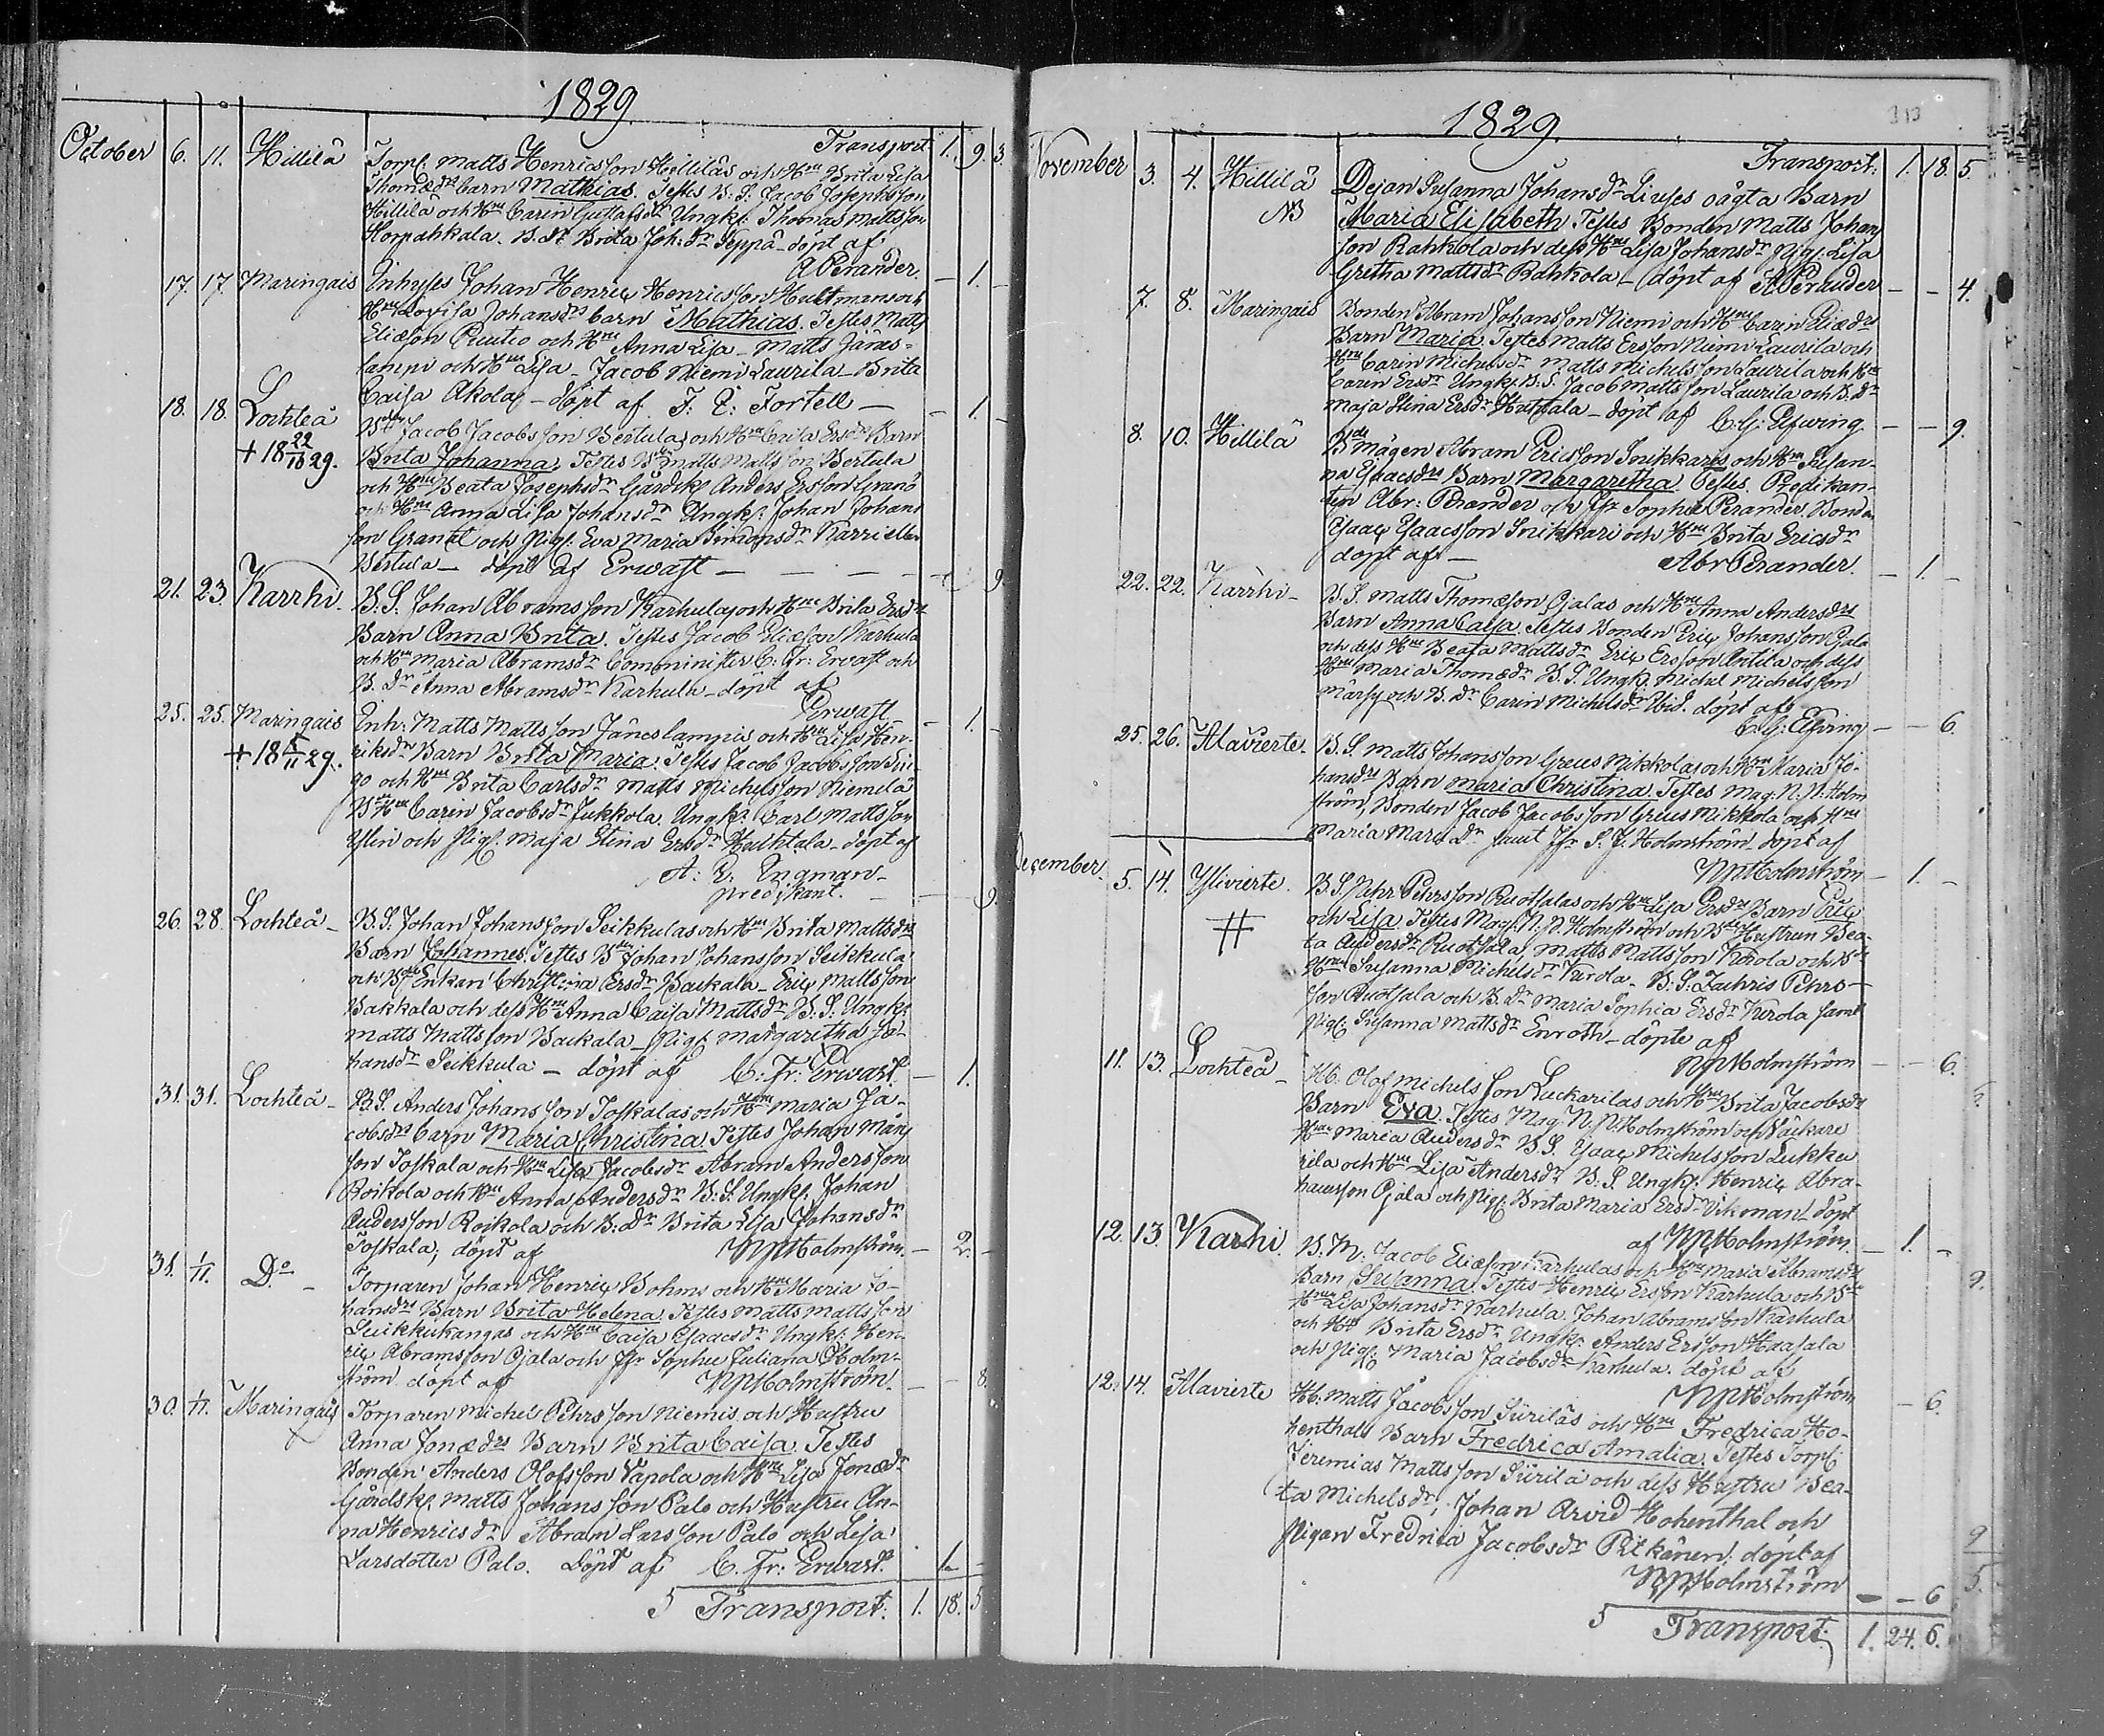 1829.
Transport 1. 9. 3.
October 6. 11. Hillilä Torp: Matts Henricsson Hilliläs och Hu Brita Lisa
Thomædrs barn Mathias. Testes B. S. Jacob Josephsson
Hillilä och Hu Carin Gustafsdr Ungk: Thomas Mattsson
Korpahkala. B. dr Brita Joh: dr Seppä - döpt af
A Perander. - 1. -
17. 17. Maringais Inhyses Johan Henric Henricsson Hultmans och
Hu Lovisa Johansdrs barn Mathias. Testes Matts
Eliæson Ruutio och Hu Anna Lisa - Matts Jänes-
lampi och Hu Lisa - Jacob Niemi Laurila - Brita
Caisa Akola - döpt af J. E: Fortell - - 1. -
18. 18. Lochteå Bdn Jacob Jacobsson Bertulas och Hu Caisa Ersdrs Barn
+ 18 22/10 29. Brita Johanna. Testes Bdn Matts Mattsson Bertula
och Hu Beata Josephsdr Gårdsk: Anders Ersson Granö
och Hu Anna Lisa Johansdr Ungk: Johan Johans
son Granat och Pig: Eva Maria Simonsdr Karri eller
Bertula - döpt af Erwast - - - - 9.
21. 23. Karrhi. B. S. Johan Abramsson Karhulas och Hu Brita Ersdrs
Barn Anna Brita. Testes Jacob Eliæson Karhula
och Hu Maria Abramsdr Comminister C: Fr: Erwast och
B. dr Anna Abramsdr Karhula - döpt af
Erwast - 1. -
25. 25. Maringais Inh: Matts Mattsson Jäneslampis och Hu Lisa Hen-
+ 18 /11 29. riksdrs Barn Brita Maria. Testes Jacob Jacobsson
och Hu Brita Carlsdr Matts Michelsson Niemelä
Hu Carin Jacobsdr Jukkola. Ungk: Carl Mattsson
och Pig: Maja Stina Ersdr Huhtala - döpt af
A: E: Engman -
predikant. - - 9.
26. 28. Lochteå - B. S. Johan Johansson Seikkulas och Hu Brita Mattsdrs
Barn Johannes. Testes Bdn Johan Johansson Seikkula
och Enkan Christina Ersdr Backala - Eric Mattsson
Bakkala och dess Hu Anna Caisa Mattsdr B. S. Ungk:
Matts Mattsson Backala - Pig: Margaretha Jo-
hansdr Seikkula - döpt af C: Fr: Erwast. - 1.
31. 31. Lochteå - B. S. Anders Johansson Toskalas och Hu Maria Ja-
cobsdrs barn Maria Christina. Testes Johan Mång
son Toskala och Hu Lisa Jacobsdr Abram Andersson
Roikola och Hu Anna Andersdr B: S. Ungk: Johan
Andersson Roikola och B. dr Brita Lisa Johansdr
Toskala; döpt af NPHolmström. - 2. -
31. 1/11. Do - Torparen Johan Henric Bohms och Hu Maria Jo-
hansdrs Barn Brita Helena. Testes Matts Mattsson
Leukkukangas och Hu Caisa Isaacsdr Ungk: Hen-
ric Abramsson Ojala och Jfr Sophie Juliana Holm-
ström döpt af NPHolmström. - - 8.
30. 1/11. Maringais Torparen Michel Pehrsson Niemis och Hustru
Anna Jonædrs Barn Brita Caisa. Testes
Bonden Anders Olofsson Vapola och Hu Lisa Jonædr
Gårdsk: Matts Johansson Palo och Hustru An-
na Henricsdr Abram Larsson Palo och Lisa
Larsdotter Palo. Döpt af C. Fr: Erwast. 1. -
5 Transport: 1. 18. 5
1829.
Transport: 1. 18. 5.
November 3. 4. Hillilä Dejan Susanna Johansdr Liuses oägta Barn
NB Maria Elisabeth. Testes Bonden Matts Johans
son Rahkola och dess Hu Lisa Johansdr Pig: Lisa
Gretha Mattsdr Rahkola - döpt af A Perander - - 4.
7. 8. Maringais Bonden Abram Johansson Niemi och Hu Carin Eliædrs
Barn Maria. Testes Matts Ersson Niemi Laurila och
Hu Carin Michelsdr Matts Michelsson Laurila och Hu
Caren Ersdr Ungk: B. S. Jacob Mattsson Laurila och B. dr
Maja Stina Ersdr Huhtala - döpt af C: G: Elfving - - 9.
8. 10. Hillilä Bde mågen Abram Ericsson Snikkares och Hu Susan-
na Isaacsdrs Barn Margaretha. Testes Predikan-
ten Abr: Perander och Jfr Sophie Perander. Bonden
Isaac Isaacsson Snikkari och Hu Brita Ericsdr
döpt af - Abr Perander. - 1. -
22. 22. Karrhi - B. S. Matts Thomæson Ojalas och Hu Anna Andersdrs
Barn Anna Caisa. Testes Bonden Eric Johansson Ojala
och dess Hu Beata Mattsdr Eric Ersson Antila och dess
Hu Maria Thomædr B. S. Ungk: Michel Michelsson
Märsy och B. dr Carin Michelsdr Ibid. döpt af
C: G: Elfving - - 6.
25. 26. Alavierte - B. S. Matts Johansson Greus Mikkolas och Hu Maria Jo-
hansdrs Barn Maria Christina. Testes Mag. N. P. Holm
ström, Bonden Jacob Jacobsson Greus Mikkola och Hu
Maria Marcsdr samt Jfr S. J. Holmström döpt af
NPHolmström - 1. -
December. 5. 14. Ylivierte. B. S. Pehr Pehrsson Ruotsalas och Hu Lisa Ersdrs Barn Eric
# och Lisa. Testes Mag. N. P. Holmström och Bde Hustrun Bea-
ta Andersdr Ruotsala, Matts Mattsson Kurola och
Hu Susanna Michelsdr Kurola. B. S. Zachris Pehrs-
son Ruotsala och B. dr Maria Sophia Ersdr Kurola samt
Pig: Susanna Mattsdr Enroth - döpte af
NPHolmström - - 6.
11. 13. Lochteå - Hb. Olof Michelsson Luckarilas och Hu Brita Jacobsdrs
Barn Eva. Testes Mag. N. P. Holmström och
Hu Maria Andersdr B. S. Isaac Michelsson Lukka
rila och Hu Lisa Andersdr B. S. Ungk: Henric Abra-
hamsson Ojala och Pig: Brita Maria Ersdr Vikman - döpt
af NPHolmström. - 1. -
12. 13. Karhi. B. M. Jacob Eliæson Karhulas och Hu Maria Abramsdrs
Barn Susanna. Testes Henric Ersson Karhula och
Hu Lisa Johansdr Karhula. Johan Abramsson Karhula
och Hu Brita Ersdr Ungk: Anders Ersson Haasala
och Pig: Maria Jacobsdr Karhula. döpt af
NPHolmström - 6.
12. 14. Alavierte Hb. Matts Jacobsson Siiriläs och Hu Fredrica Ho-
henthals Barn Fredrica Amalia. Testes Torp:
Jeremias Mattsson Siirilä och dess Hustru Bea-
ta Michelsdr, Johan Arvid Hohenthal och
Pigan Fredrica Jacobsdr Pitkänen: döpt af
NPHolmström - - 6
5 Transport: 1. 24. 6.